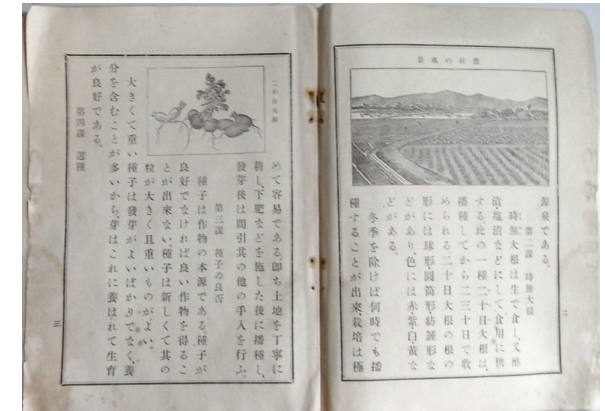 農村の風景
源泉である。
第二課 時無大根
時無大根は生で食し、又酢
漬、鹽漬などにして食用に供
する。此の一種二十日大根は、
播種してから二三十日で收
められる。二十日大根の根の
形には球形・圓筒形・紡錘形な
どがあり、色には赤・紫・白・黃な
どがある。
冬季を除けば何時でも播
種することが出來、栽培は極
二
二十日大根
めて容易である。卽ち土地を丁寧に
耕し、下肥などを施した後に播種し、
發芽後は間引其の他の手入を行ふ。
第三課 種子の良否
種子は作物の本源である。種子が
良好でなければ良い作物を得るこ
とが出來ない。種子は新しくて其の
粒が大きく且重いものがよい。
大きくて重い種子は發芽がよいばかりでなく、養
分を含むことが多いから、芽はこれに養はれて生育
が良好である。
第四課 選種
三